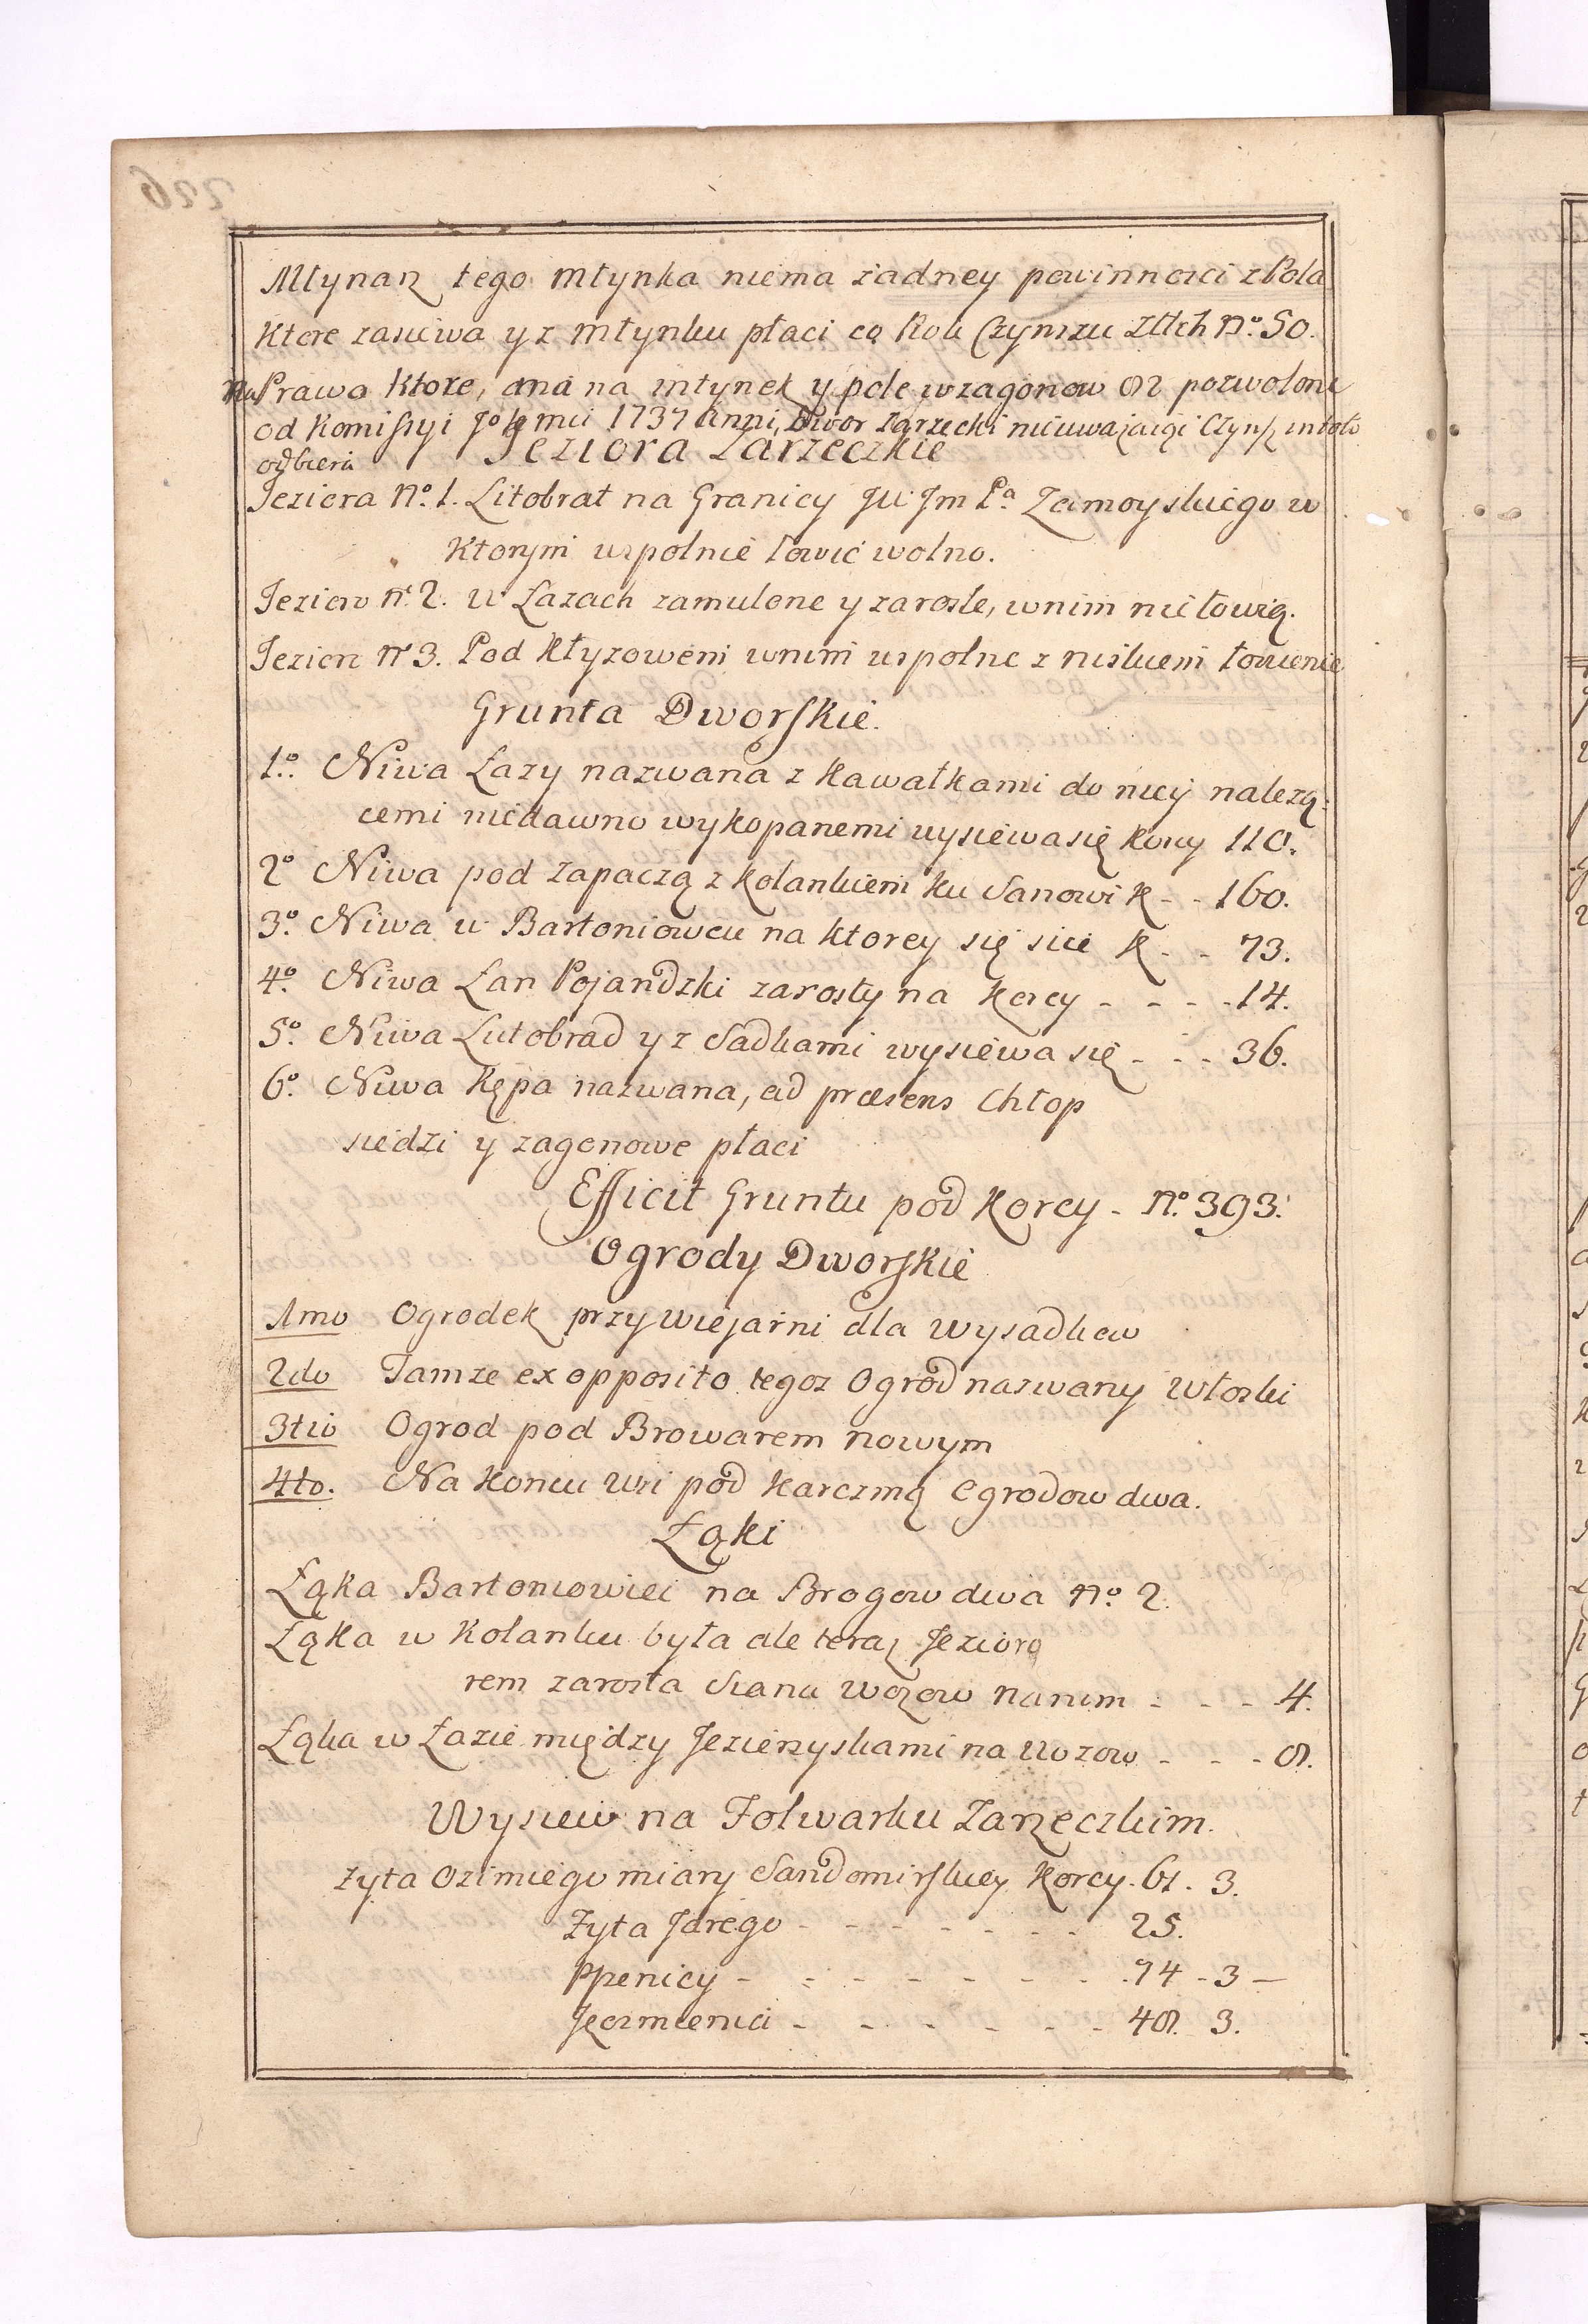 Młynarz tego Młynka niema żadney powinnosci z Pola
Ktore zasiewa y z Młynku płaci co Rok Czynszu Złłch No. 50.
Na Prawa Ktore, ma na młynek y pole wzagonow 82 pozwolone
od Komissyi 1737 Anni, Dwor Zarzecki nieuważaiąc Czynsz in toto
odbiera
Jeziora Zarzeczkie
Jeziora No. 1. Litobrat na Granicy JW Jm Pa. Zamoyskiego w
Ktorym wspolnie łowić wolno.
Jezioro nr. 2. w Łazach zamulone y zarosłe, wnim nie łowią.
Jezioro nr 3. Pod Kłyzowem wnim wspolne z niskiem łowienie
Grunta Dworskie.
1o. Niwa Łazy nazwana z Kawałkami do niey należą:
cemi niedawno wykopanemi wysiewa się Korcy 110.
2o Niwa pod Zapaczą z Kolankiem ku Sanowi K - - 160.
3o. Niwa w Bartoniowcu na ktorey się sieie K - - 73.
4o. Niwa Łan Pojandzki zarosły na Korcy - - - - 14.
5o. Niwa Lutobrad y z Sadkami wysiewa się - - - 36.
6o. Niwa Kępa nazwana, ad præsens Chłop
siedzi y zagonowe płaci
Efficit Gruntu pod Korcy - No. 393.
Ogrody Dworskie
1mo Ogrodek przy Wiejarni dla Wysadkow
2do Tamże ex opposito tegoż Ogrod nazwany Włoski
3tio Ogrod pod Browarem nowym
4to. Na Koncu Wsi pod Karczmą Ogrodow dwa.
Łąki
Łąka Bartoniowiec na Brogow dwa No. 2.
Łąka w Kolanku była ale teraz Jezioro
rem zarosła Siana Wozow nanim - - - 4.
Łąka w Łazie między Jezierzyskami na Wozow - - - 8.
Wysiew na Folwarku Zarzeczkim.
Żyta Ozimiego miary Sandomirskiey Korcy. 61. 3.
Żyta Jarego - - - - - - 25.
Pszenicy - - - - - - - 74 - 3 -
Jęczmienia - - - - - - 48. 3.